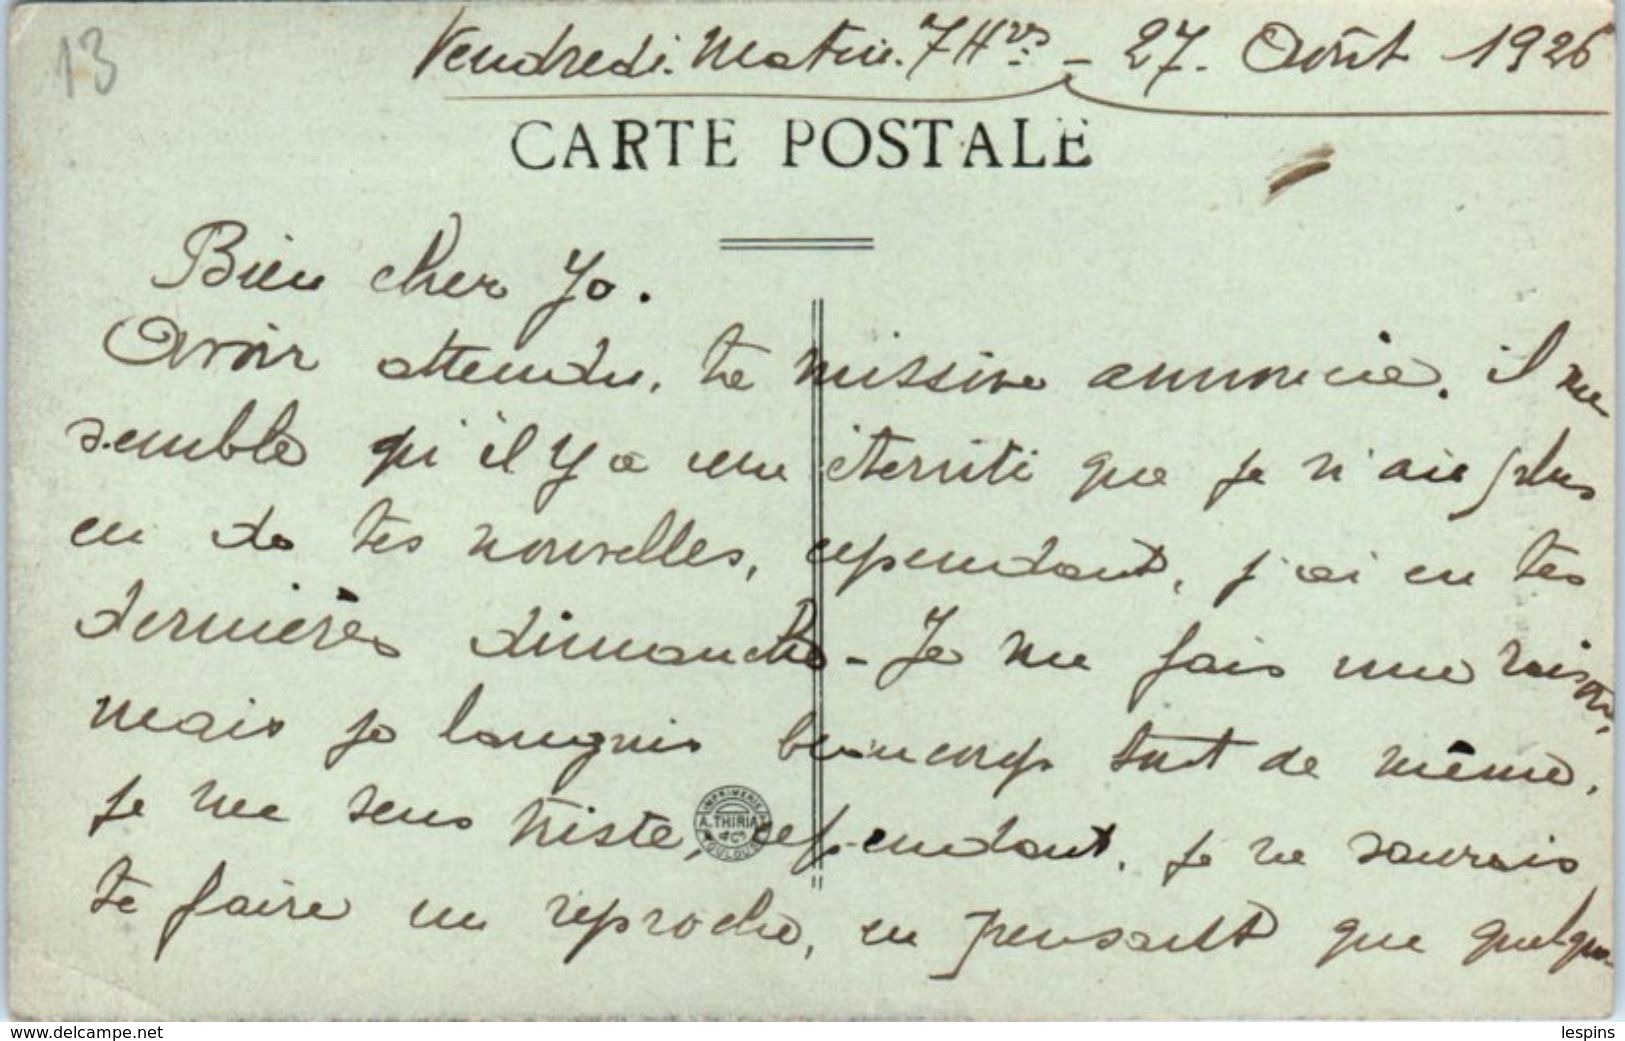 13
Vendredi. Matin. 7 Hres - 27. Août 1926
CARTE POSTALE
Bien cher Jo.
Avoir attendu, ta missive annoncée. il me
semble qu'il y a une éternité que je n'aie plus
eu de tes nouvelles, cependant, j'ai eu tes
dernières dimanche - Je me fais une raison,
mais je languis beaucoup tout de même,
je me sens triste, cependant, je ne saurais
te faire un reproche, en pensant que quelque
IMPRIMERIE
A. THIRIAT
& Cie
TOULOUSE
www.delcampe.net
lespins